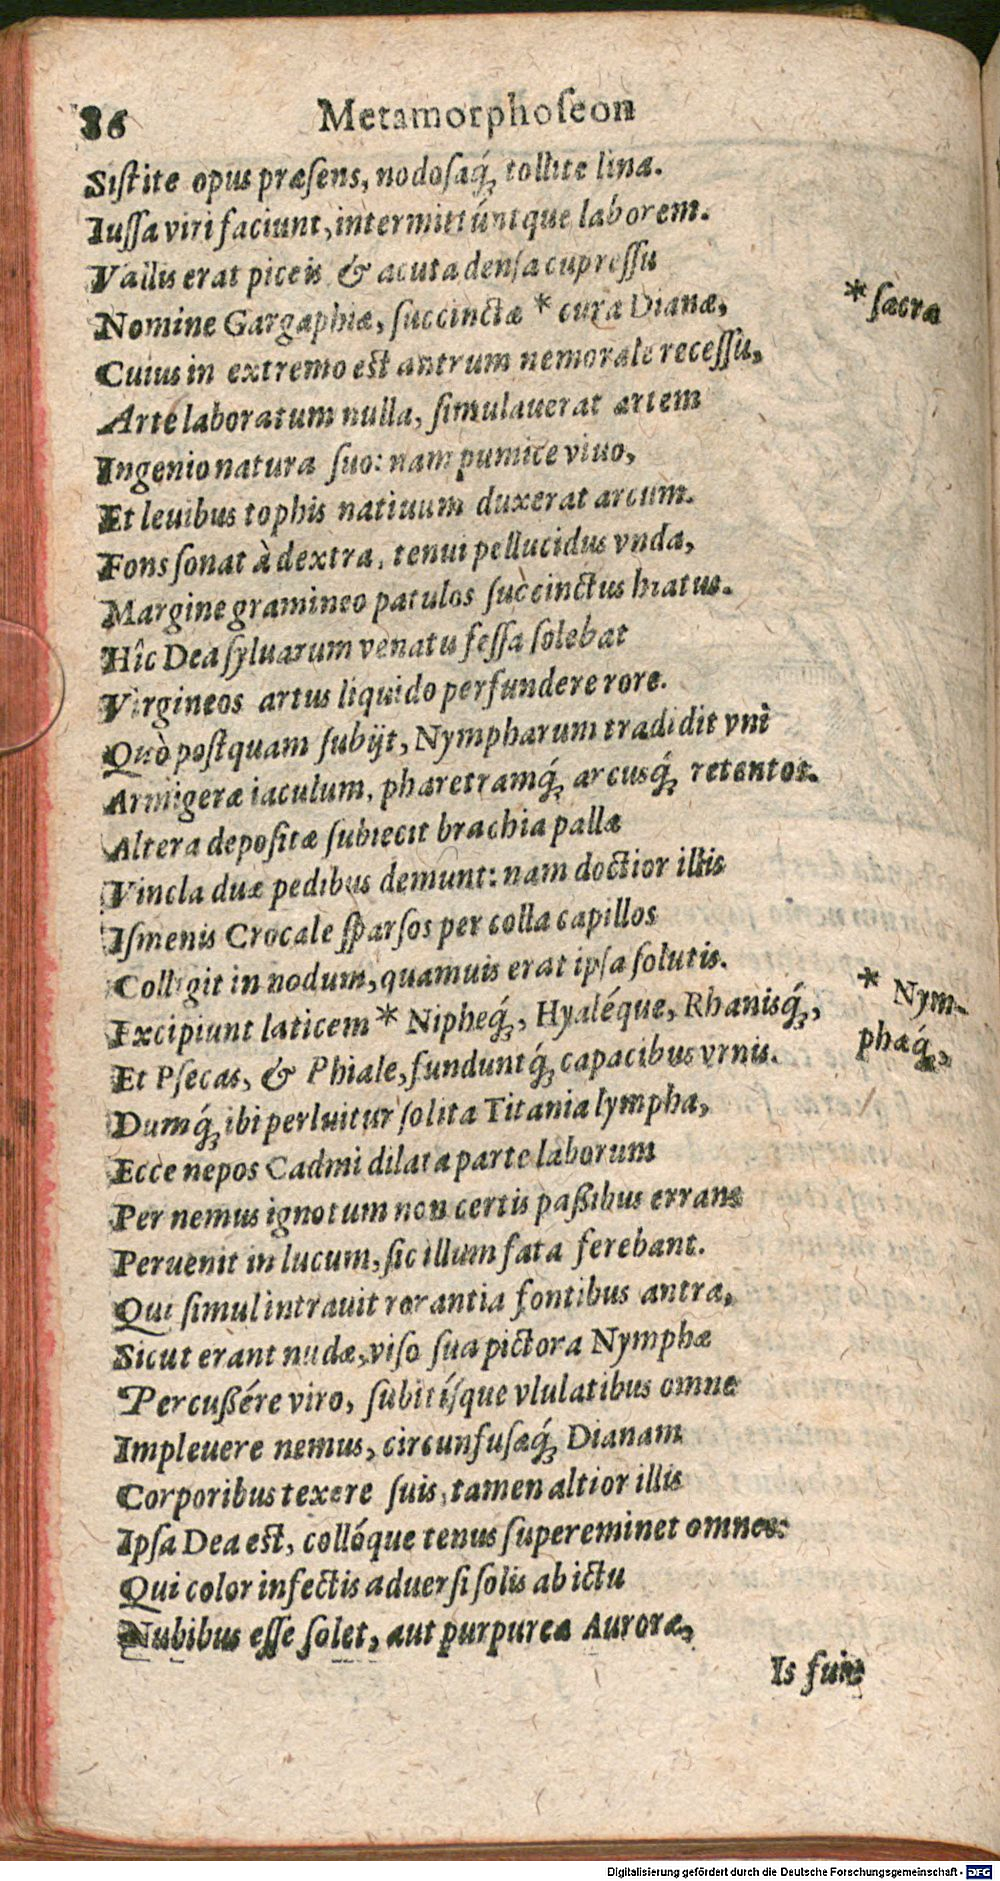 86 Metamorphoſeon
Siſtite opus præſens, nodoſaq́; tollite lina.
Iuſſa viri faciunt, intermittúntque laborem.
Vallis erat piceis & acuta denſa cupreſſu
Nomine Gargaphiæ, ſuccinctæ * cura Dianæ,
* ſacra
Cuius in extremo eſt antrum nemorale receſſu,
Arte laboratum nulla, ſimulauerat artem
Ingenio natura ſuo: nam pumice viuo,
Et leuibus tophis natiuum duxerat arcum.
Fons ſonat à dextra, tenui pellucidus vnda,
Margine gramineo patulos ſuccinctus hiatus.
Hîc Dea ſyluarum venatu feſſa ſolebat
Virgineos artus liquido perfundere rore.
Quò poſtquam ſubijt, Nympharum tradidit vni
Armigeræ iaculum, pharetramq́; arcusq́; retentos.
Altera depoſitæ ſubiecit brachia pallæ
Vincla duæ pedibus demunt: nam doctior illis
Iſmenis Crocale ſparſos per colla capillos
Colligit in nodum, quamuis erat ipſa ſolutis.
Excipiunt laticem * Nipheq́;, Hyaléque, Rhanisq́;,
* Nym-
phaq́;,
Et Pſecas, & Phiale, funduntq́; capacibus vrnis.
Dumq́; ibi perluitur ſolita Titania lympha,
Ecce nepos Cadmi dilata parte laborum
Per nemus ignotum non certis paßibus errans
Peruenit in lucum, ſic illum fata ferebant.
Qui ſimul intrauit rorantia fontibus antra,
Sicut erant nudæ, viſo ſua pictora Nymphæ
Percußére viro, ſubitíſque vlulatibus omne
Impleuere nemus, circunfuſæq́; Dianam
Corporibus texere ſuis, tamen altior illis
Ipſa Dea eſt, collóque tenus ſupereminet omnes:
Qui color infectis aduerſi ſolis ab ictu
Nubibus eſſe ſolet, aut purpurea Auroræ,
Is fuit
Digitalisierung gefördert durch die Deutsche Forschungsgemeinschaft - DFG